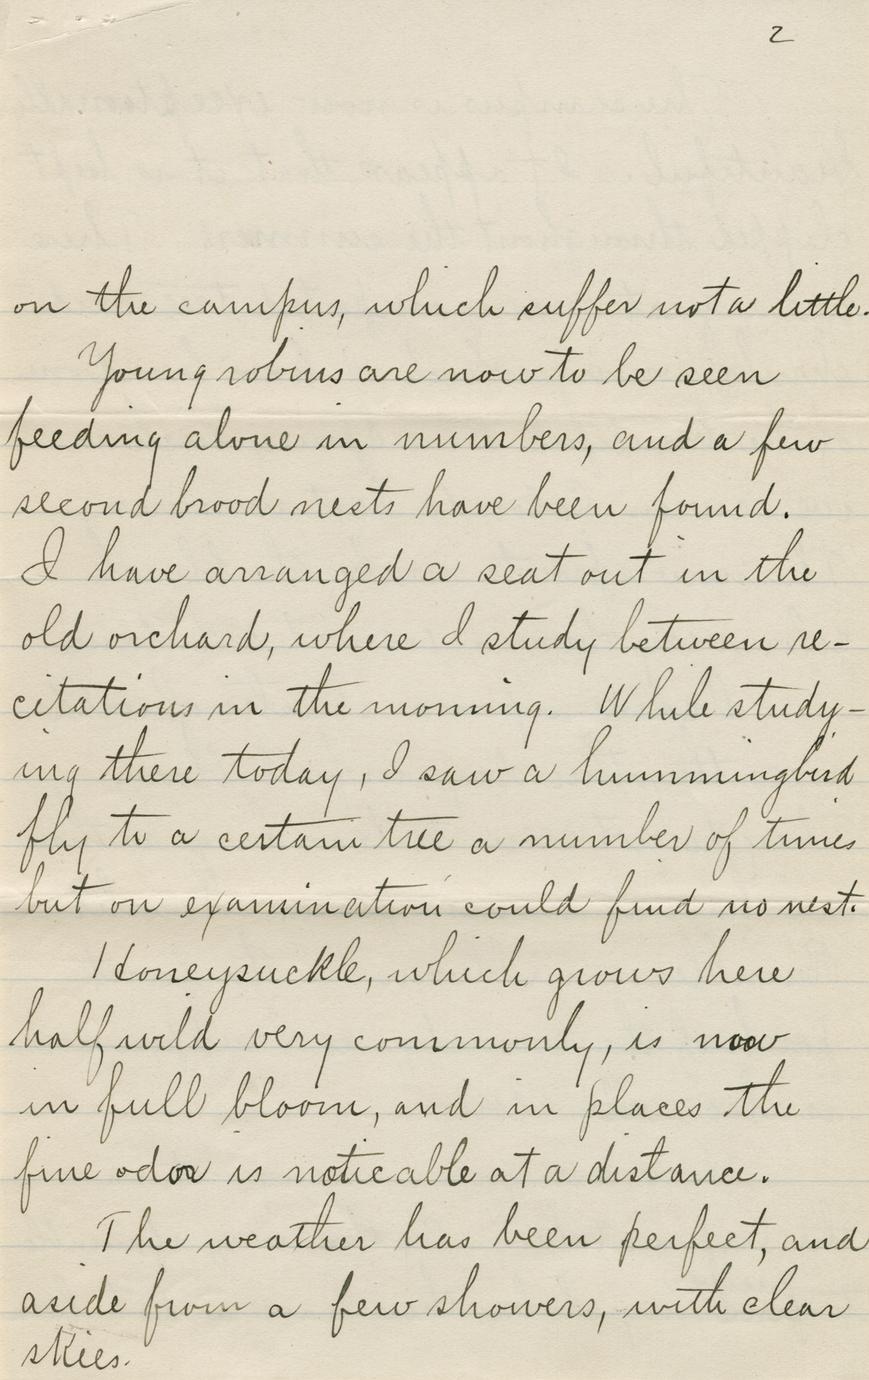 2
on the campus, which suffer not a little.
Young robins are now to be seen
feeding alone in numbers, and a few
second brood nests have been found.
I have arranged a seat out in the
old orchard, where I study between re-
citations in the morning. While study-
ing there today, I saw a hummingbird
fly to a certain tree a number of times
but on examination could find no nest.
Honeysuckle, which grows here
half wild very commonly, is now
in full bloom, and in places the
fine odor is noticable at a distance.
The weather has been perfect, and
aside from a few showers, with clear
skies.